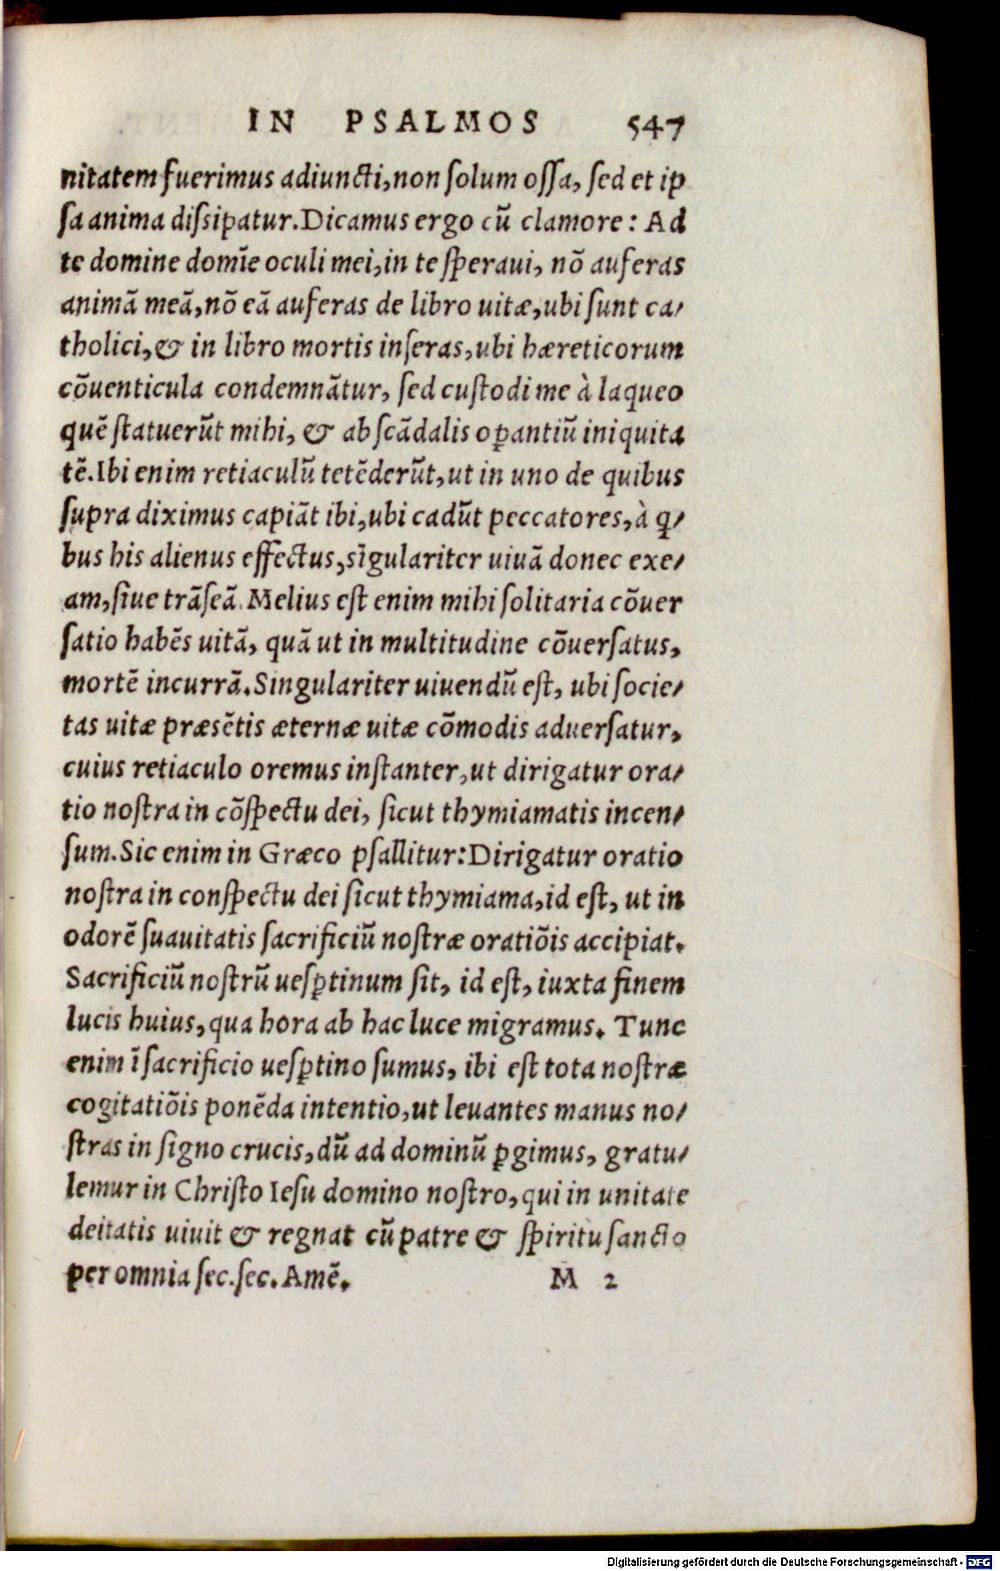 IN PSALMOS 547
nitatem fuerimus adiuncti, non ſolum oſſa, ſed et ip
ſa anima diſsipatur. Dicamus ergo cũ clamore: Ad
te domine domĩe oculi mei, in te ſperaui, nõ auferas
animã meã, nõ eã auferas de libro uitæ, ubi ſunt ca/
tholici, & in libro mortis inſeras, ubi hæreticorum
cõuenticula condemnãtur, ſed cuſtodi me à laqueo
quẽ ſtatuerũt mihi, & ab ſcãdalis oꝑantiũ iniquita
tẽ. Ibi enim retiaculũ tetẽderũt, ut in uno de quibus
ſupra diximus capiãt ibi, ubi cadũt peccatores, à q̃/
bus his alienus effectus, sĩgulariter uiuã donec exe/
am, ſiue trãſeã. Melius eſt enim mihi ſolitaria cõuer
ſatio habẽs uitã, quã ut in multitudine cõuerſatus,
mortẽ incurrã. Singulariter uiuendũ eſt, ubi ſocie/
tas uitæ præsẽtis æternæ uitæ cõmodis aduerſatur,
cuius retiaculo oremus inſtanter, ut dirigatur ora/
tio noſtra in cõſpectu dei, ſicut thymiamatis incen/
ſum. Sic enim in Græco pſallitur: Dirigatur oratio
noſtra in conſpectu dei ſicut thymiama, id eſt, ut in
odorẽ ſuauitatis ſacrificiũ noſtræ oratiõis accipiat.
Sacrificiũ noſtrũ ueſꝑtinum ſit, id eſt, iuxta finem
lucis huius, qua hora ab hac luce migramus. Tunc
enim ĩ ſacrificio ueſꝑtino ſumus, ibi eſt tota noſtræ
cogitatiõis ponẽda intentio, ut leuantes manus no/
ſtras in ſigno crucis, dũ ad dominũ ꝑgimus, gratu/
lemur in Chriſto Ieſu domino noſtro, qui in unitate
deitatis uiuit & regnat cũ patre & ſpiritu ſancto
per omnia ſec. ſec. Amẽ. M 2
Digitalisierung gefördert durch die Deutsche Forschungsgemeinschaft - DFG